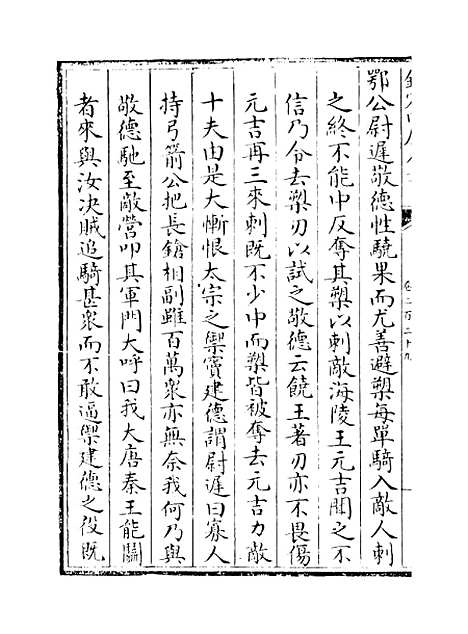 鄂公尉遲敬德性驍果而尤善避槊每單騎入敵人刺
之終不能中反奪其槊以刺敵海陵王元吉聞之不
信乃令去槊刃以試之敬德云饒王著刃亦不畏傷
元吉再三來刺既不少中而槊皆被奪去元吉力敵
十夫由是大慚恨太宗之禦竇建德謂尉遲曰寡人
持弓箭公把長鎗相副雖百萬衆亦無奈我何乃與
敬德馳至敵營叩其軍門大呼曰我大唐秦王能鬬
者來與汝决賊追騎甚衆而不敢逼禦建德之役既
卷二百二十九